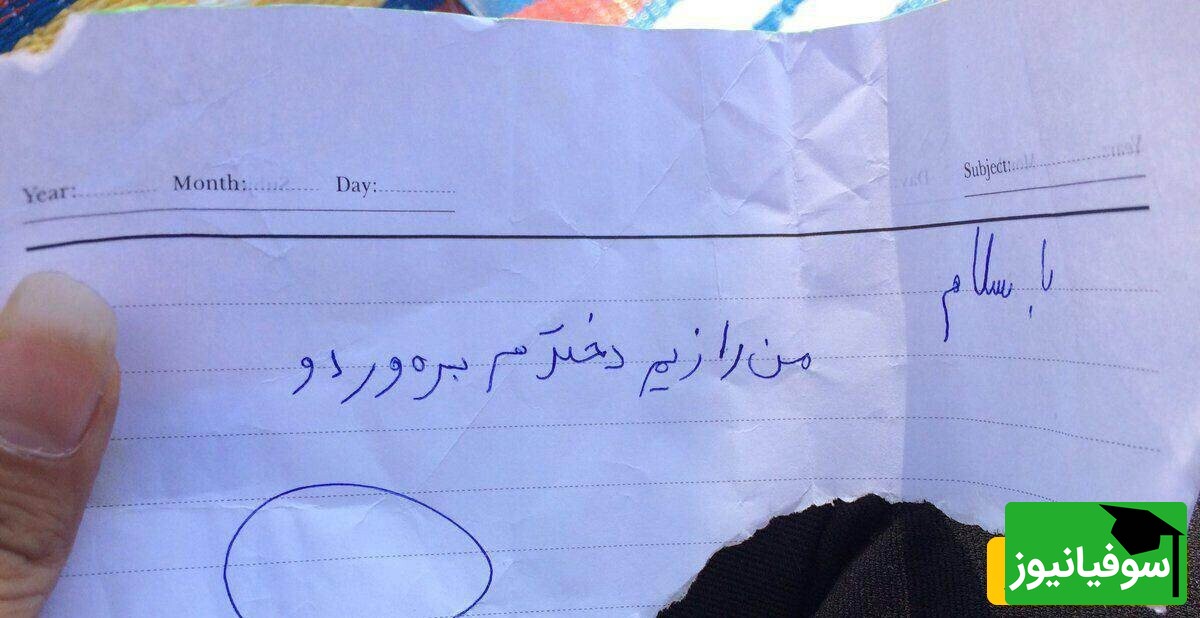 Year: Month: Day: Subject:
با سلام
من رازیم دخترم بره وردو
سوفیانیوز